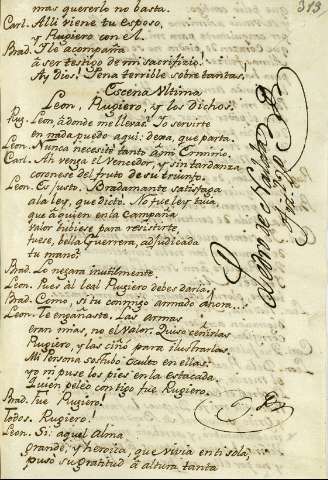 313
mas quererlo no basta.
Carl. Alli viene tu esposo,
y Rugiero con el.
Brad. I le acompaña
á ser testigo de mi sacrificio!
Ay Dios! Pena terrible sobre tantas!
Escena Vltima
Leon, Rugiero, y los dichos.
Rug. Leon á donde me llevas? Io servirte
en nada puedo aqui: dexa, que parta.
Leon. Nunca necesité tanto á mi
Carl. Ah venga el Vencedor, y sin tardanza
coronese del fruto de su triunfo.
Leon. Es justo. Bradamante satisfaga
a la ley, que dictó. No fue ley tuya,
que á quien en la Campaña
valor hubiese para resistirte,
fuese, bella Guerrera, adjudicada
tu mano?
Brad. Lo negara inutilmente.
Leon. Pues al leal Rugiero debes darla.
Brad. Cómo, si tu conmigo armado ahora...
Leon. Te engañaste. Las armas
eran mias, no el Valor. Quiso ceñirlas
Rugiero, y las ciñó para ilustrarlas.
Mi Persona sostubo oculto en ellas:
yo ni puse los pies en la estacada.
Quien peleó contigo fue Rugiero.
Brad. Fue Rugiero!
Todos. Rugiero!
Leon. Si: aquel Alma
grande, y heroica, que vivia en ti sola,
puso su gratitud á altura tanta